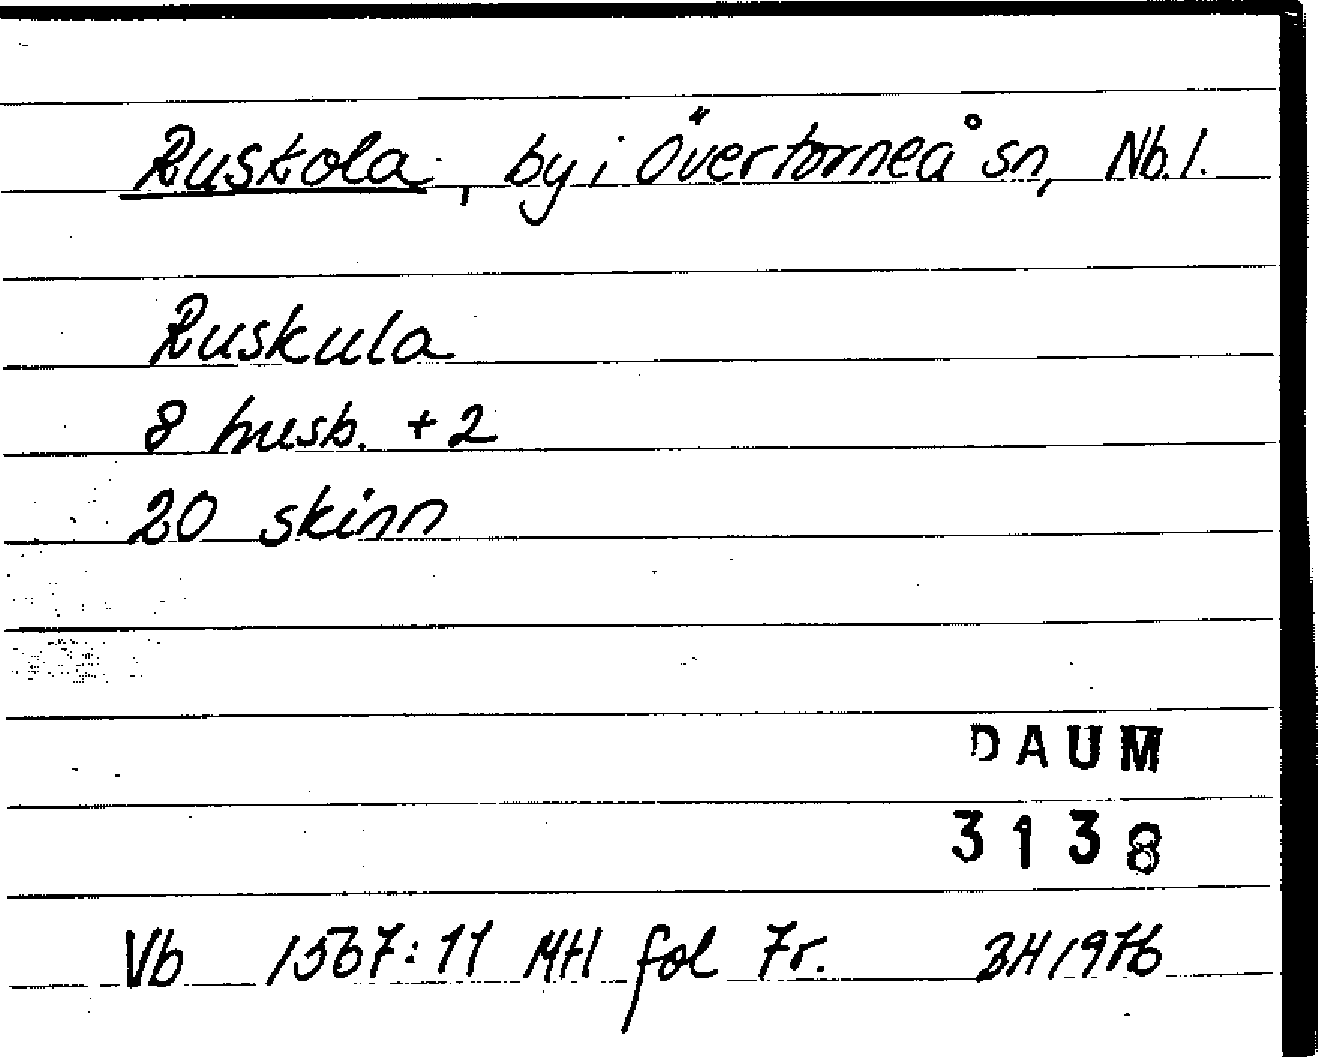 Ruskola, by i Övertorneå sn, Nb.l.
Ruskula
8 husb. +2
20 skinn
DAUM
3138
Vb 1567:11 MH fol 7r. BH1976